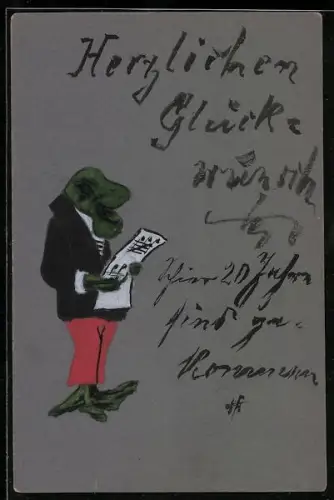 Herzlichen
Glück-
wünsch
Hier 20 Jahre
sind ge-
kommen